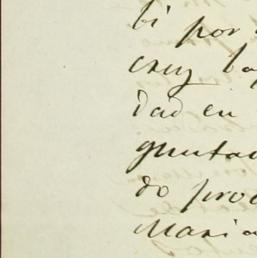 bi por
cruz ba
dad en
guntad
do proc
Maria